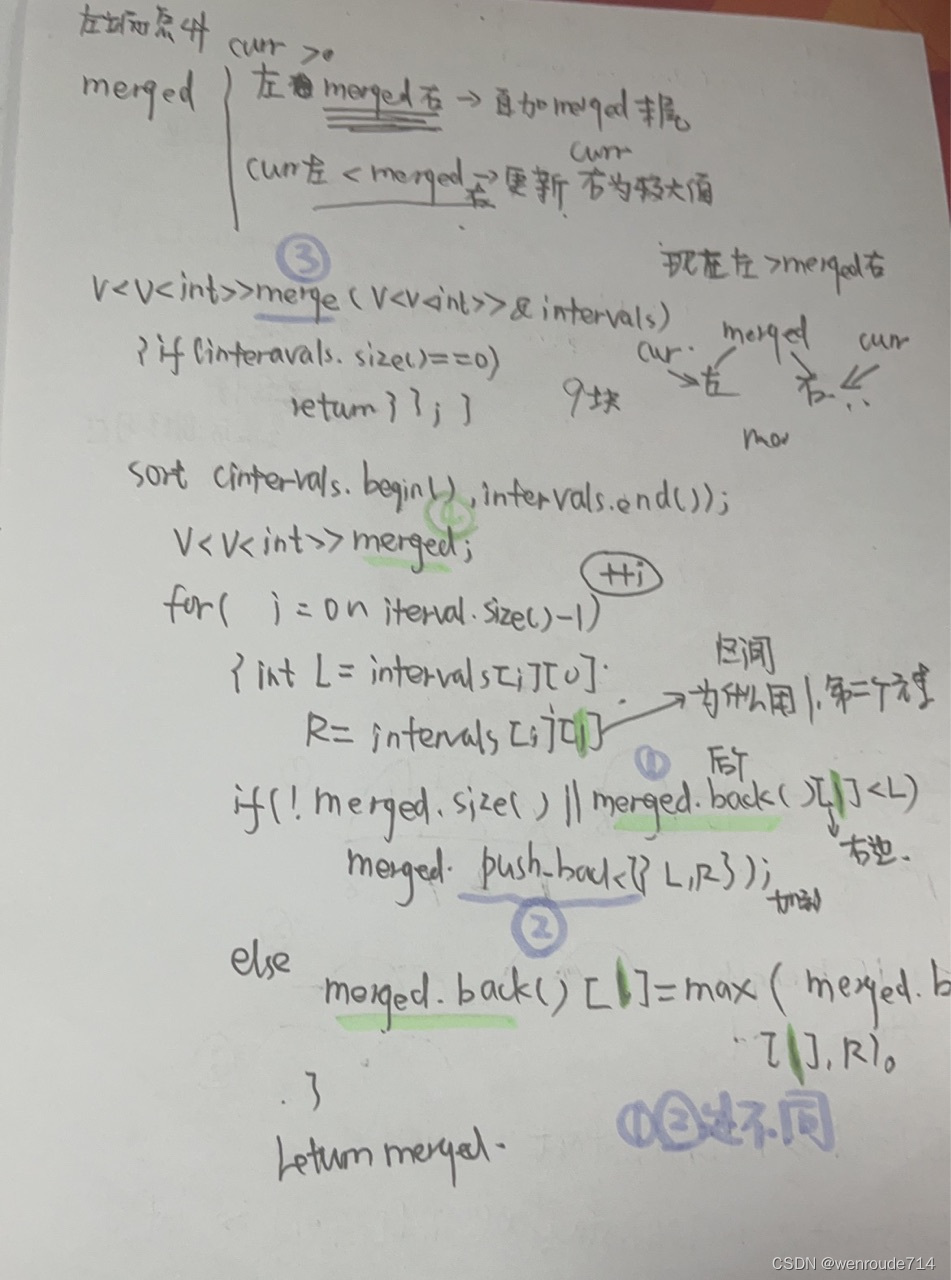 左 curr >0
merged 左 merged右 → 直加merged末尾
curr
curr左 < merged右 → 更新 右为较大值
③
现在左>merged右
V<V<int>>merge(V<V<int>>&intervals)
cur. merged curr
左 右
{if(interavals.size()==0)
return { }; }
9块
mer
sort (intervals.begin(), intervals.end());
V<V<int>> merged;
++i
for( i = 0 n iterval.size()-1)
区间
{int L = intervals[i][0].
为什么用1.第二个元素
R= intervals[i][1]
① 后个
if(! merged.size() || merged.back()[1]<L)
右边.
merged. push_back({ L,R});
加到
②
else
merged.back()[1]=max( merged.b
[1],R)。
}
①②这不同
return merged.
CSDN @wenroude714